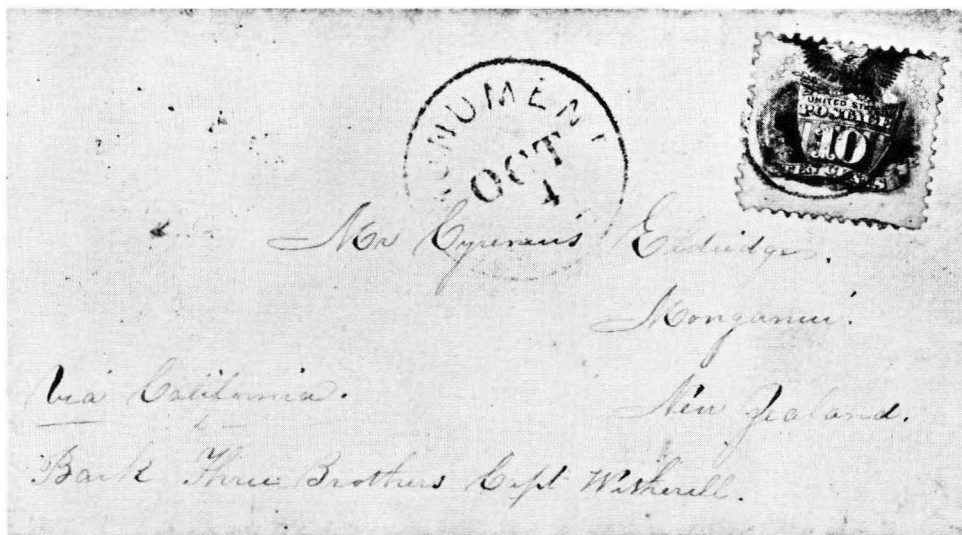 MONUMENT
OCT
4
UNITED STATES
POSTAGE
10
TEN CENTS
Mr Cyrenius Eldridge,
Monganui.
via California.
New Zealand.
Bark Three Brothers Capt Witherell.